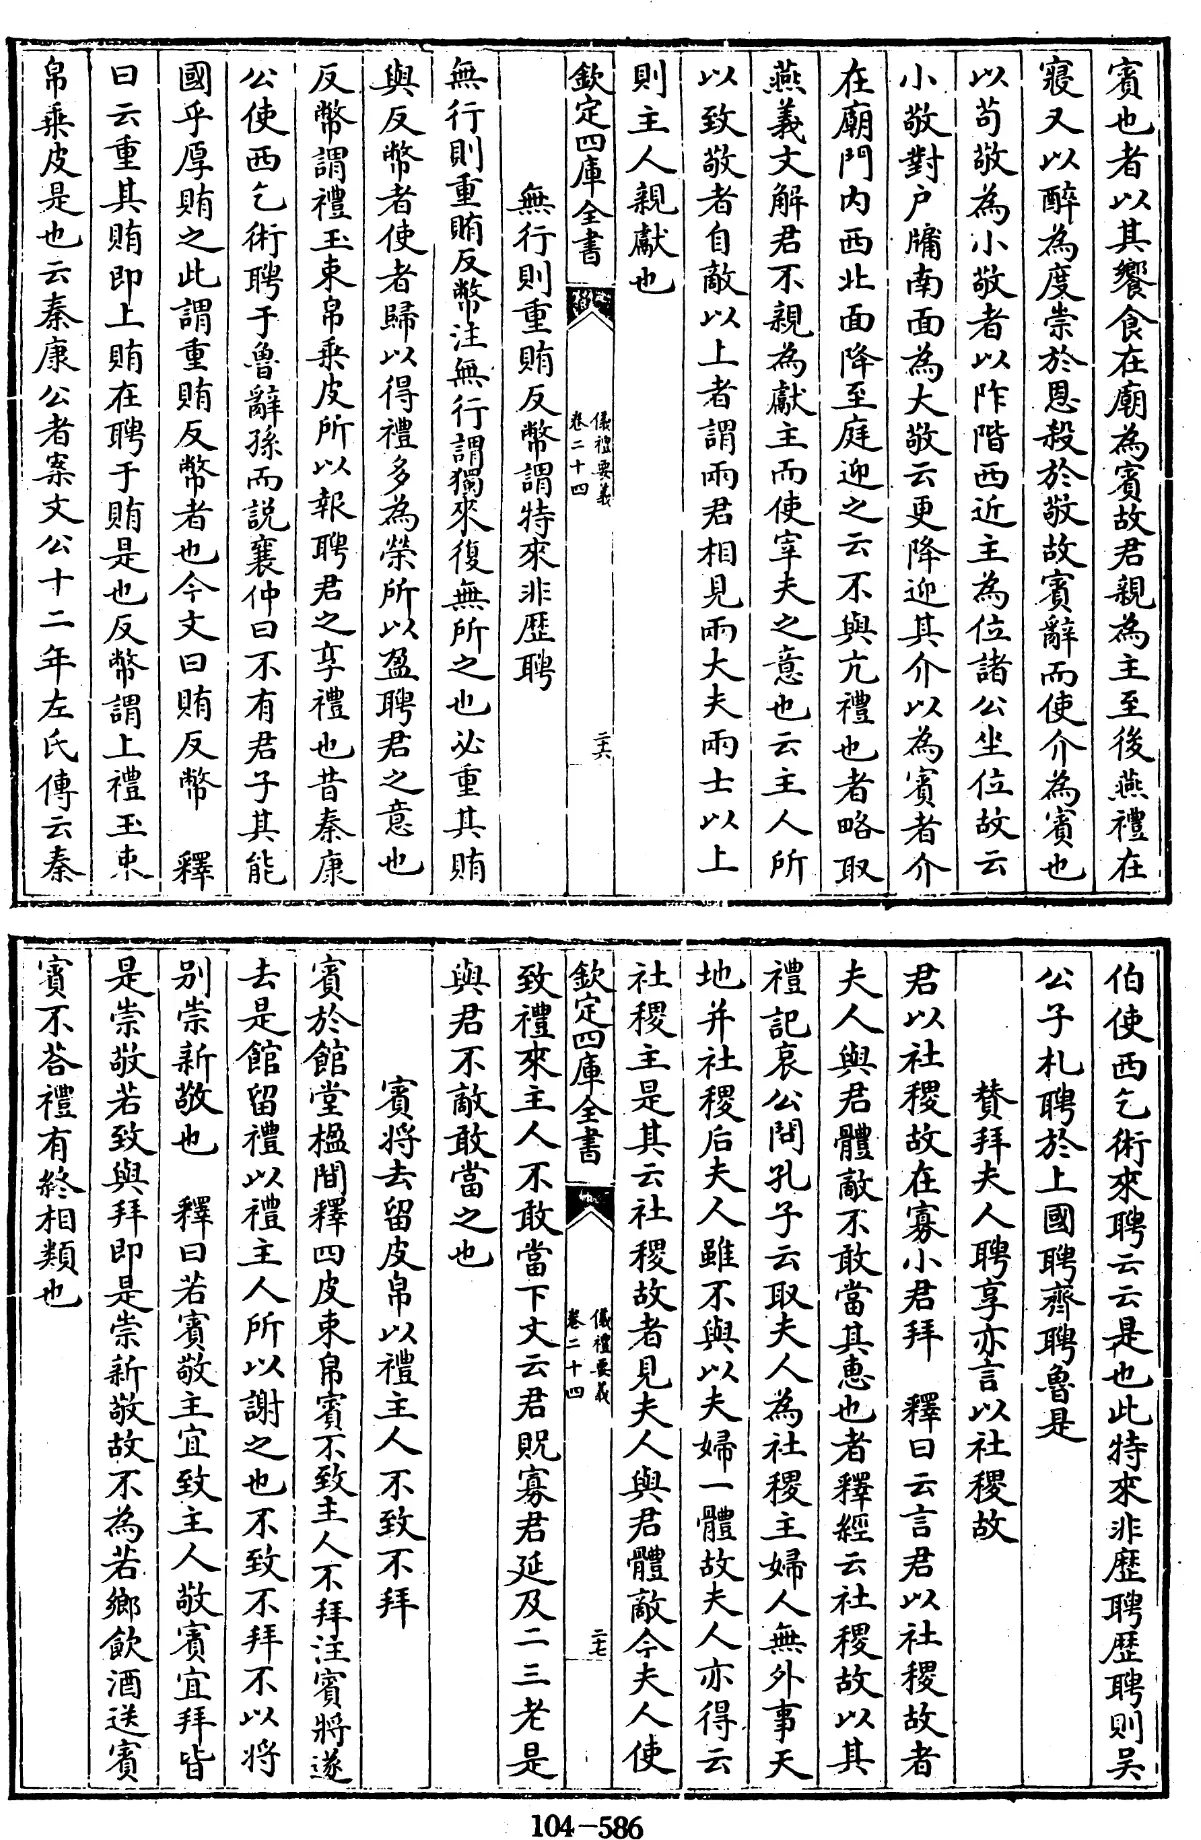 賓也者以其饗食在廟為賓故君親為主至後燕禮在
寢又以醉為度崇於恩殺於敬故賓辭而使介為賓也
以茍敬為小敬者以阼階西近主為位諸公坐位故云
小敬對户牖南面為大敬云更降迎其介以為賓者介
在廟門内西北面降至庭迎之云不與亢禮也者略取
燕義文解君不親為獻主而使宰夫之意也云主人所
以致敬者自敵以上者謂兩君相見兩大夫兩士以上
則主人親獻也
欽定四庫全書
儀禮要義
卷二十四
二六
無行則重賄反幣謂特來非歴聘
無行則重賄反幣注無行謂獨來復無所之也必重其賄
與反幣者使者歸以得禮多為榮所以盈聘君之意也
反幣謂禮玉束帛乗皮所以報聘君之享禮也昔秦康
公使西乞術聘于魯辭孫而説襄仲曰不有君子其能
國乎厚賄之此謂重賄反幣者也今文曰賄反幣　釋
曰云重其賄即上賄在聘于賄是也反幣謂上禮玉束
帛乗皮是也云秦康公者案文公十二年左氏傳云秦
伯使西乞術來聘云云是也此特來非歴聘歴聘則吴
公子札聘於上國聘齊聘魯是
賛拜夫人聘享亦言以社稷故
君以社稷故在寡小君拜　釋曰云言君以社稷故者
夫人與君體敵不敢當其惠也者釋經云社稷故以其
禮記哀公問孔子云取夫人為社稷主婦人無外事天
地并社稷后夫人雖不與以夫婦一體故夫人亦得云
社稷主是其云社稷故者見夫人與君體敵今夫人使
欽定四庫全書
儀禮要義
卷二十四
二七
致禮來主人不敢當下文云君貺寡君延及二三老是
與君不敵敢當之也
賓將去留皮帛以禮主人不致不拜
賓於館堂楹間釋四皮束帛賓不致主人不拜注賓將遂
去是館留禮以禮主人所以謝之也不致不拜不以將
别崇新敬也　釋曰若賓敬主宜致主人敬賓宜拜皆
是崇敬若致與拜即是崇新敬故不為若鄉飲酒送賓
賓不荅禮有終相類也
104-586